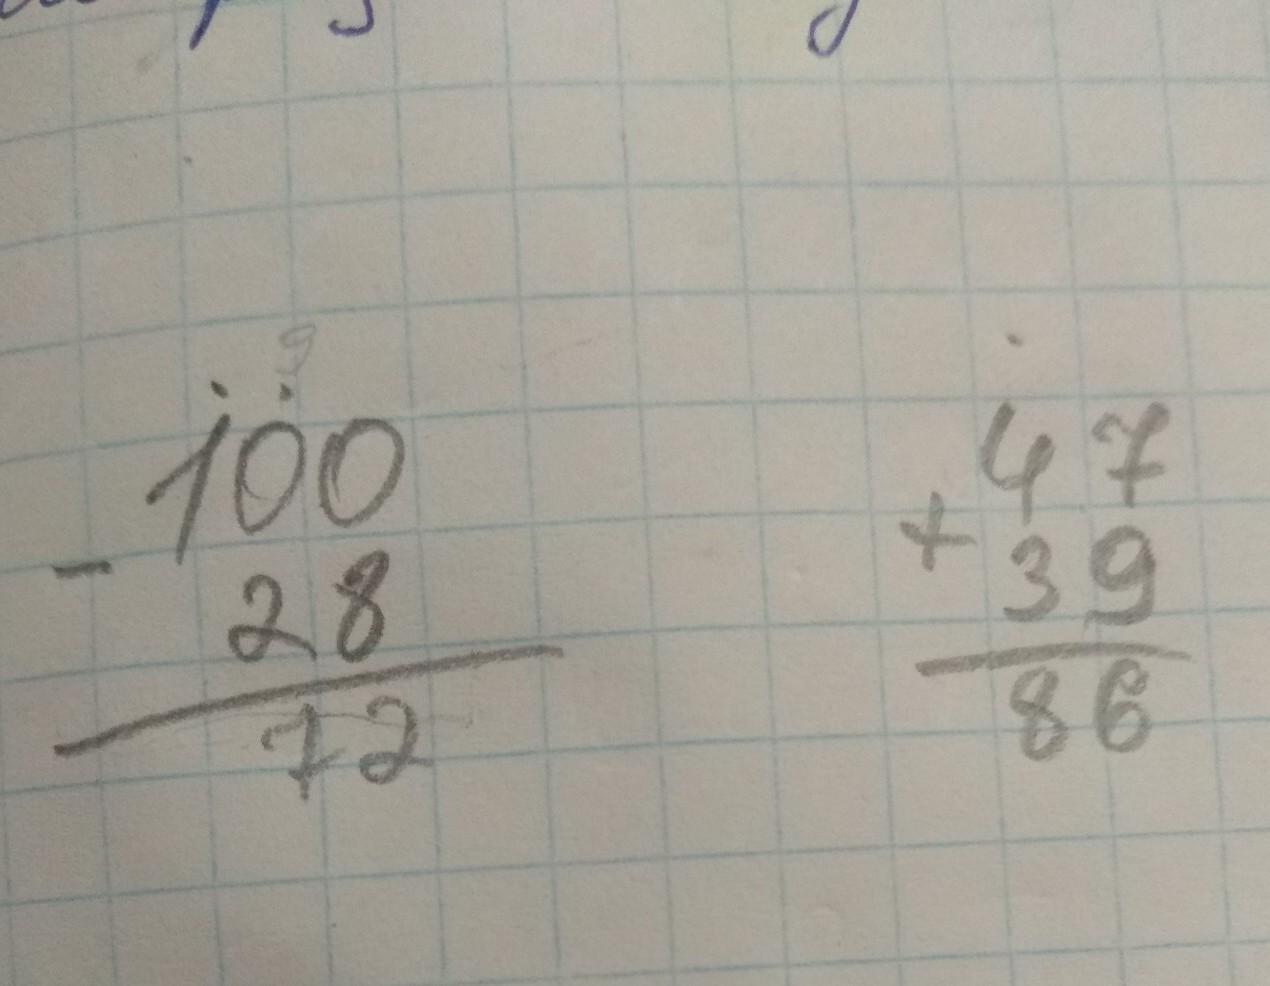 9
100
- 28
72
47
+ 39
86